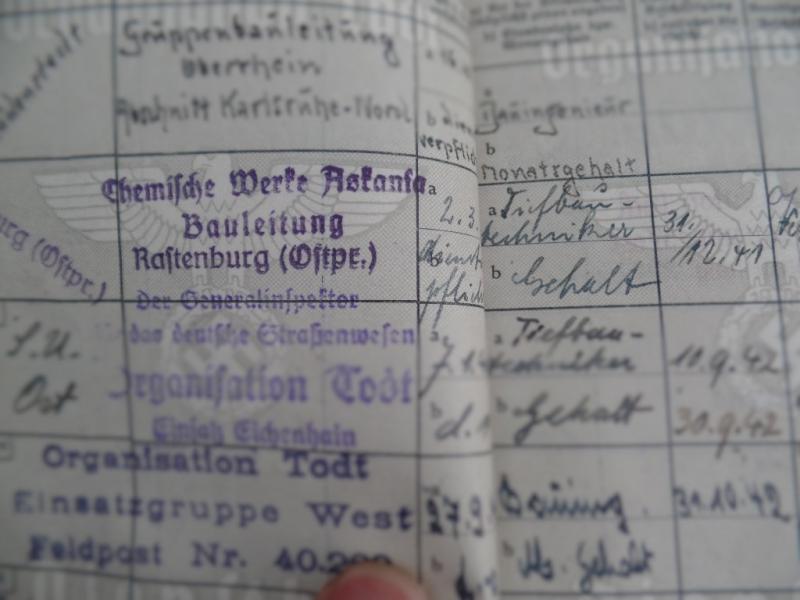 Gruppenbauleitung
Oberrhein
Abschnitt Karlsruhe-Nord
Bauingenieur
b
verpflic
Monatsgehalt
Chemische Werke Askania
Bauleitung
Rastenburg (Ostpr.)
urg (Ostpr.)
a
2.3.
Dienst
pflich
a Tiefbau-
techniker
b Gehalt
31.
/12.41
Der Generalinspektor
das deutsche Straßenwesen
Organisation Todt
Einsatz Eichenhain
S.U.
Ost
a
b d.
a Tiefbau-
techniker
b Gehalt
10.9.42
30.9.42
Organisation Todt
Einsatzgruppe West
Feldpost Nr. 40.
27.9.
b
31.10.42
b